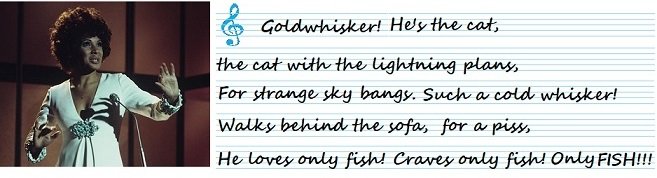 Goldwhisker! He's the cat,
the cat with the lightning plans,
For strange sky bangs. Such a cold whisker!
Walks behind the sofa, for a piss,
He loves only fish! Craves only fish! Only FISH!!!